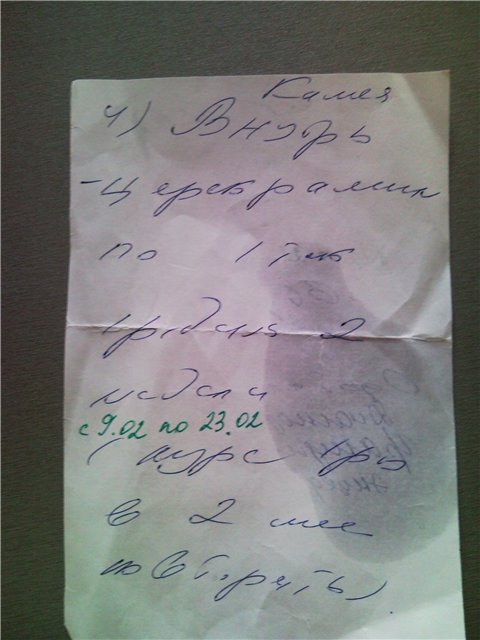 Камея
4) Внутрь
- Церебрамин
по 1 таб
2
недели
с 9.02 по 23.02
( курс
в 2 мес
повторять)